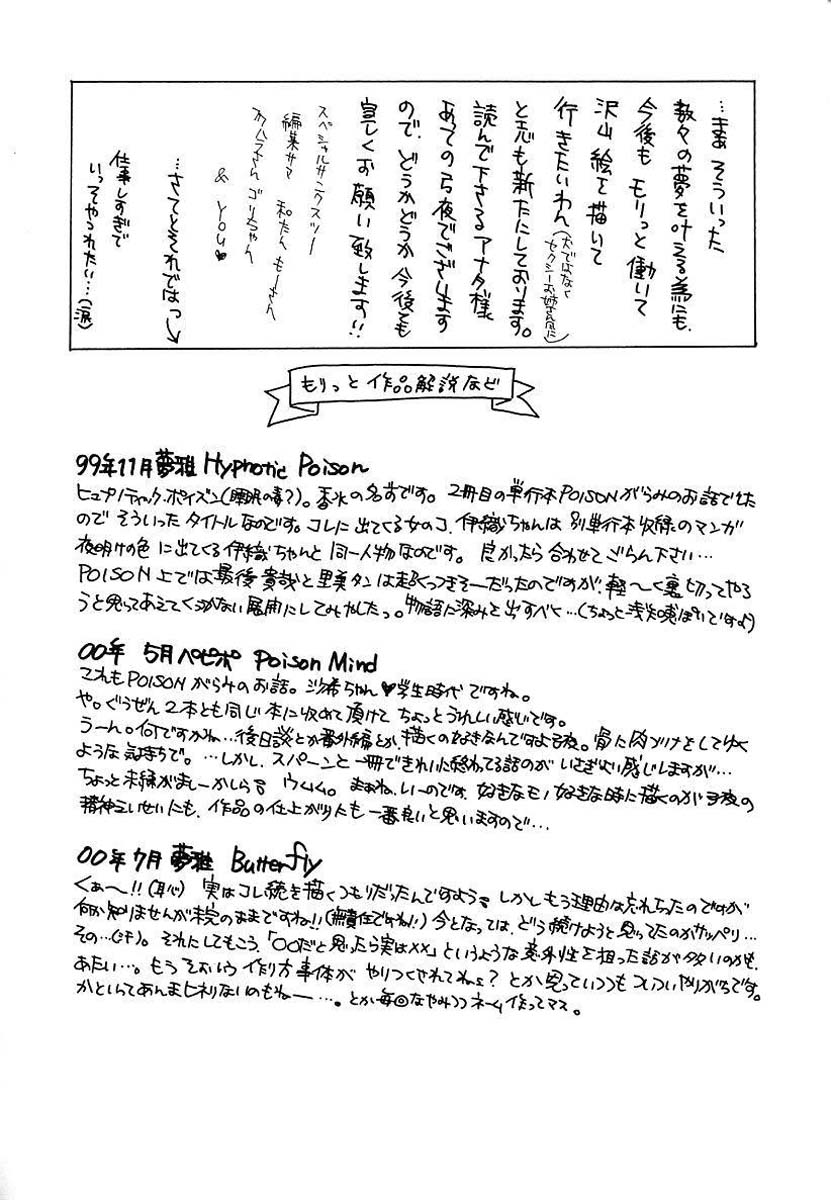 …まぁ そういった
数々の夢を叶える為にも、
今後も モリっと働いて
沢山 絵を描いて
行きたいわん(犬ではなく
セクシーお姉さん風に)
と志も新たにしております。
読んで下さるアナタ様
あっての弓夜でございます
ので、どうかどうか今後とも
宜しくお願い致します!!
スペシャルサンクスツー
編集サマ 和たん もーさん
ゴリちゃん
& YOU♥
…さてとそれではっ
仕事しすぎで
いっそやつれたい…(涙)
もりっと作品解説など
99年11月夢雅 Hyphotic Poison
ヒュプノティック・ポイズン(睡眠の毒?)。香水の名前です。2冊目の単行本POISONがらみのお話でした
ので そういったタイトルなのです。コレに出てくる女のコ、伊織ちゃんは 別単行本収録のマンガ
夜明けの色 に出てくる伊織ちゃんと 同一人物なのです。良かったら合わせてごらん下さい…
POISON上では最後 貴哉と里美タンは超くっつきそーだったのですが、軽〜く裏切ってやろ
うと思ってあえてくっつかない展開にしてみやしたっ。物語に深みを出すべく…(ちょっと浅知恵ぽいですよ)
00年 5月ペピポ Poison Mind
これもPOISONがらみのお話。沙希ちゃん♥学生時代ですね。
や。ぐうぜん2本とも同じ本に収めて頂けて ちょっとうれしい感じです。
うーん。何ですかね…後日談とか番外編とか、描くの好きなんですよ。骨に肉づけをしてゆく
ような気持ちで。…しかし、スパーンと一冊できれいに終わってる話のが いさぎよい感じしますが…
ちょっと未練がましーかしら? ウムム。まぁね、いーのです。好きなモノ好きな時に描くのが 弓夜の
精神えいせいにも、作品の仕上がりにも 一番良いと思いますので…
00年7月夢雅 Butterfly
くぁ〜!!(恥) 実はコレ続きを描くつもりだったんですよう。しかしもう理由は忘れちったのですが
何か知りませんが未完のままですね!!(無責任ですね!)今となっては、どう続けようと思ってたのかサッパリ…
その…(汗)。それにしてもこう、「○○だと思ったら実は××」というような意外性を狙った話が多いのかも、
あたい…。もう そおゆう作り方事体が やりつくされてねぇ? とか思っていつつも ついついやりがちです。
かといってあんまヒネリないのもねー…。とか毎回なやみつつ ネーム作ってマス。